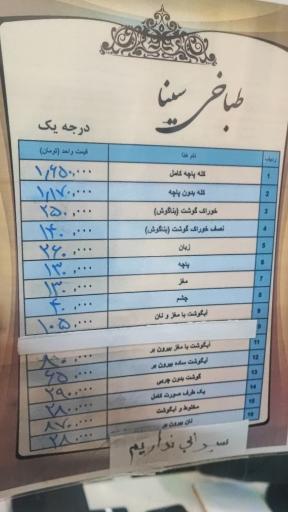 طباخی سینا
درجه یک
ردیف نام غذا قیمت واحد (تومان)
1 کله پاچه کامل ۱,۶۵۰,۰۰۰
2 کله بدون پاچه ۱,۱۷۰,۰۰۰
3 خوراک گوشت (بناگوش) ۲۵۰,۰۰۰
4 نصف خوراک گوشت (بناگوش) ۱۴۰,۰۰۰
5 زبان ۲۶۰,۰۰۰
6 پاچه ۱۳۰,۰۰۰
7 مغز ۱۳۰,۰۰۰
8 چشم ۴۰,۰۰۰
9 آبگوشت با مغز و نان ۱۰۵,۰۰۰
11 آبگوشت با مغز بیرون بر
12 آبگوشت ساده بیرون بر
13 گوشت بدون چربی
14 یک طرف صورت کامل
15 مخلوط و آبگوشت
16 نان بیرون بر
سیرابی نداریم